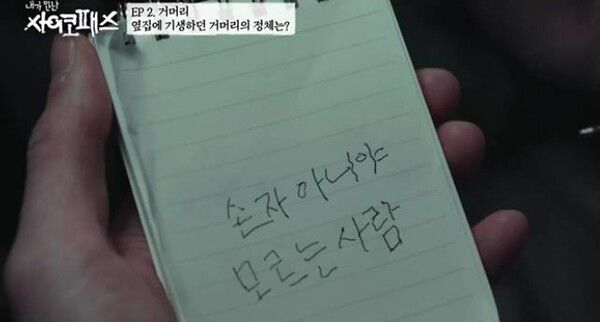 내가 만난
사이코패스
EP 2. 거머리
옆집에 기생하던 거머리의 정체는?
손자 아니야
모르는 사람